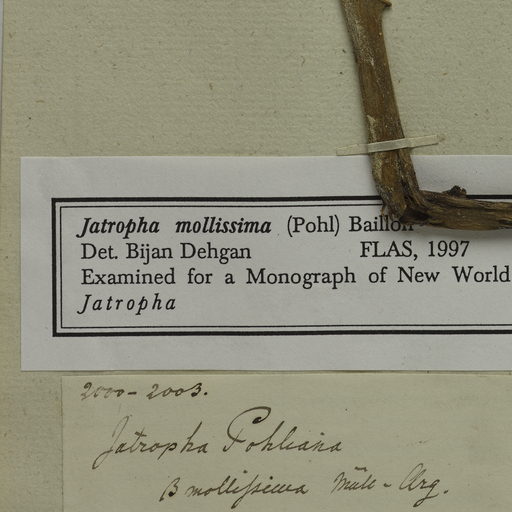 Jatropha mollissima (Pohl) Baillon
Det. Bijan Dehgan FLAS, 1997
Examined for a Monograph of New World
Jatropha
2000-2003.
Jatropha Pohliana
β mollissima Müll-Arg.